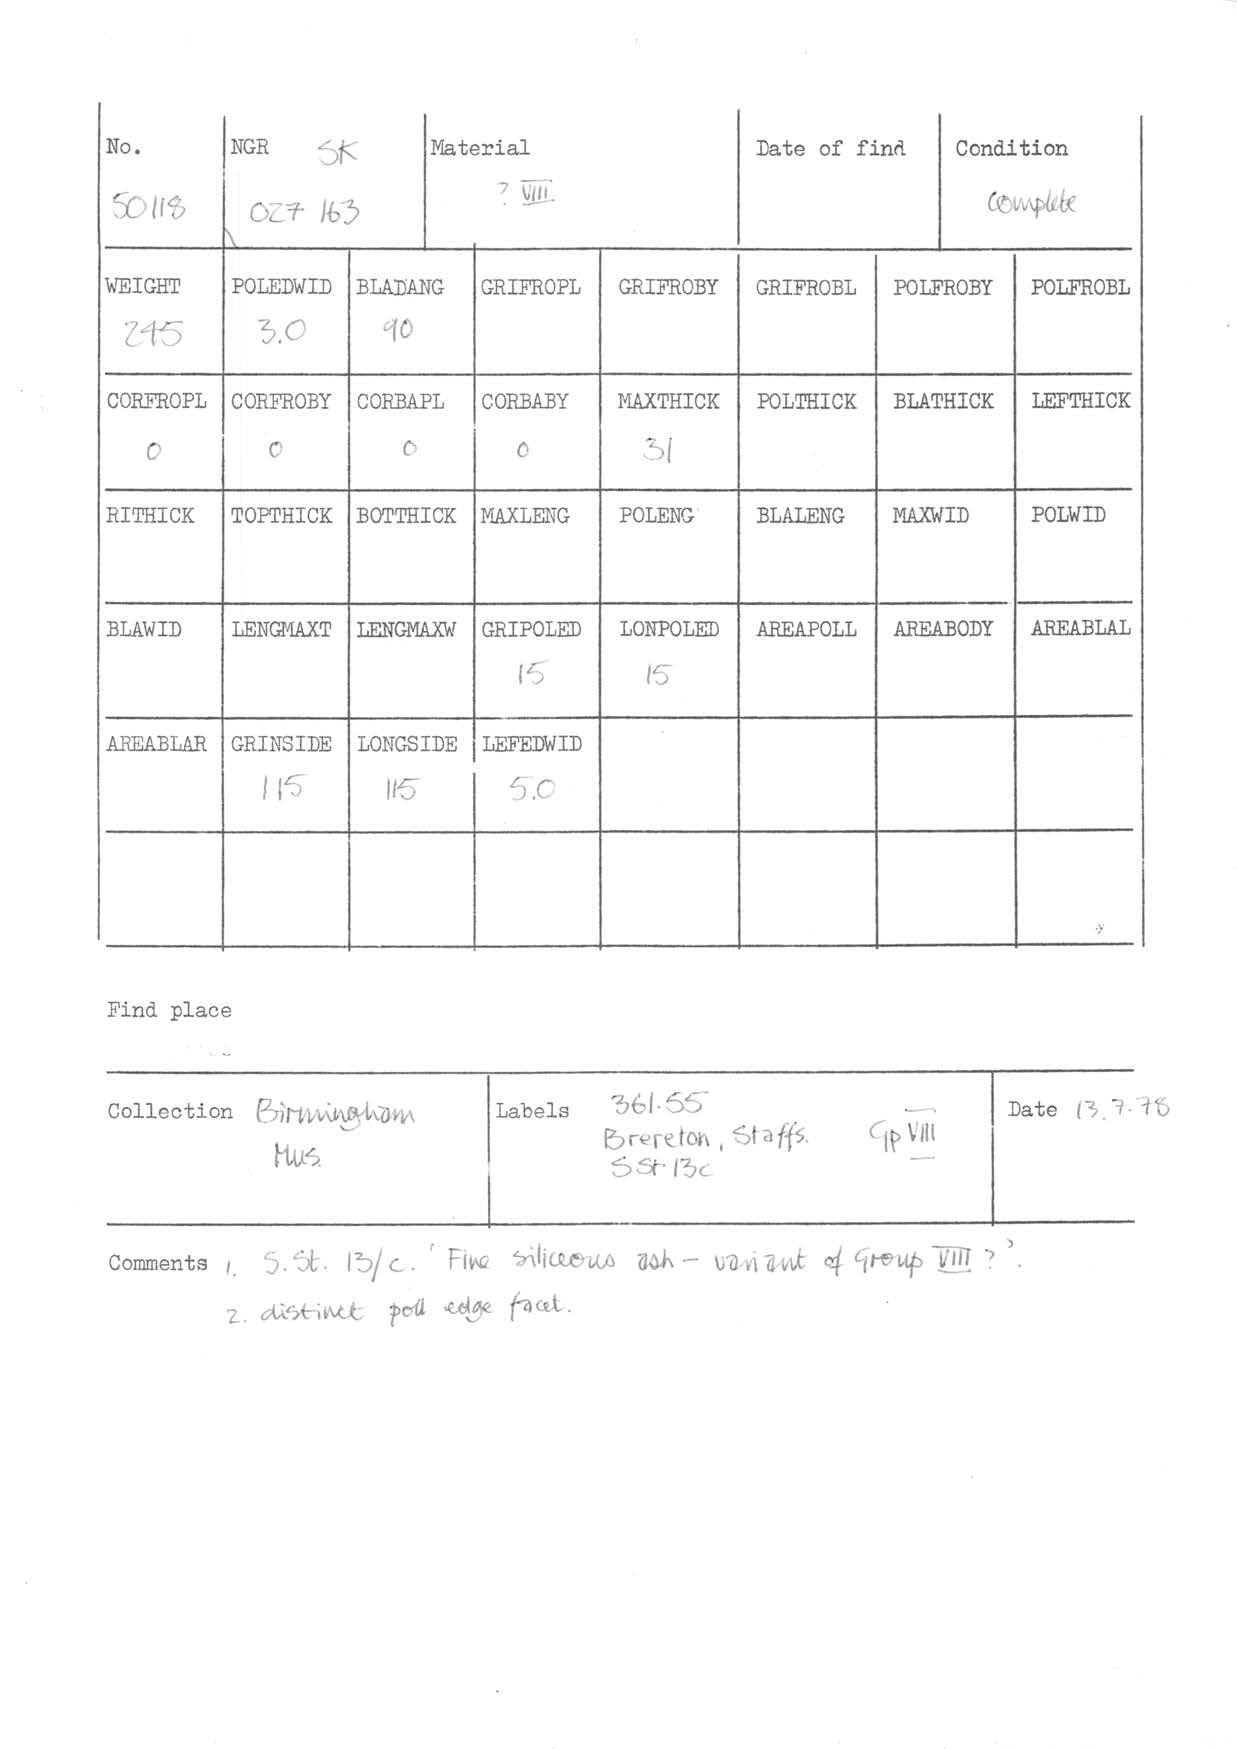 No. NGR SK Material Date of find Condition
50118 027 163 ? VIII complete
WEIGHT POLEDWID BLADANG GRIFROPL GRIFROBY GRIFROBL POLFROBY POLFROBL
245 3.0 90
CORFROPL CORFROBY CORBAPL CORBABY MAXTHICK POLTHICK BLATHICK LEFTHICK
0 0 0 0 31
RITHICK TOPTHICK BOTTHICK MAXLENG POLENG BLALENG MAXWID POLWID
BLAWID LENGMAXT LENGMAXW GRIPOLED LONPOLED AREAPOLL AREABODY AREABLAL
15 15
AREABLAR GRINSIDE LONGSIDE LEFEDWID
115 115 5.0
Find place
Collection Birmingham
Mus.
Labels 361.55
Brereton, Staffs. Gp VIII
S St 13c
Date 13.7.78
Comments 1. S.St. 13/c. 'Fine siliceous ash - variant of Group VIII ?'.
2. distinct poll edge facet.